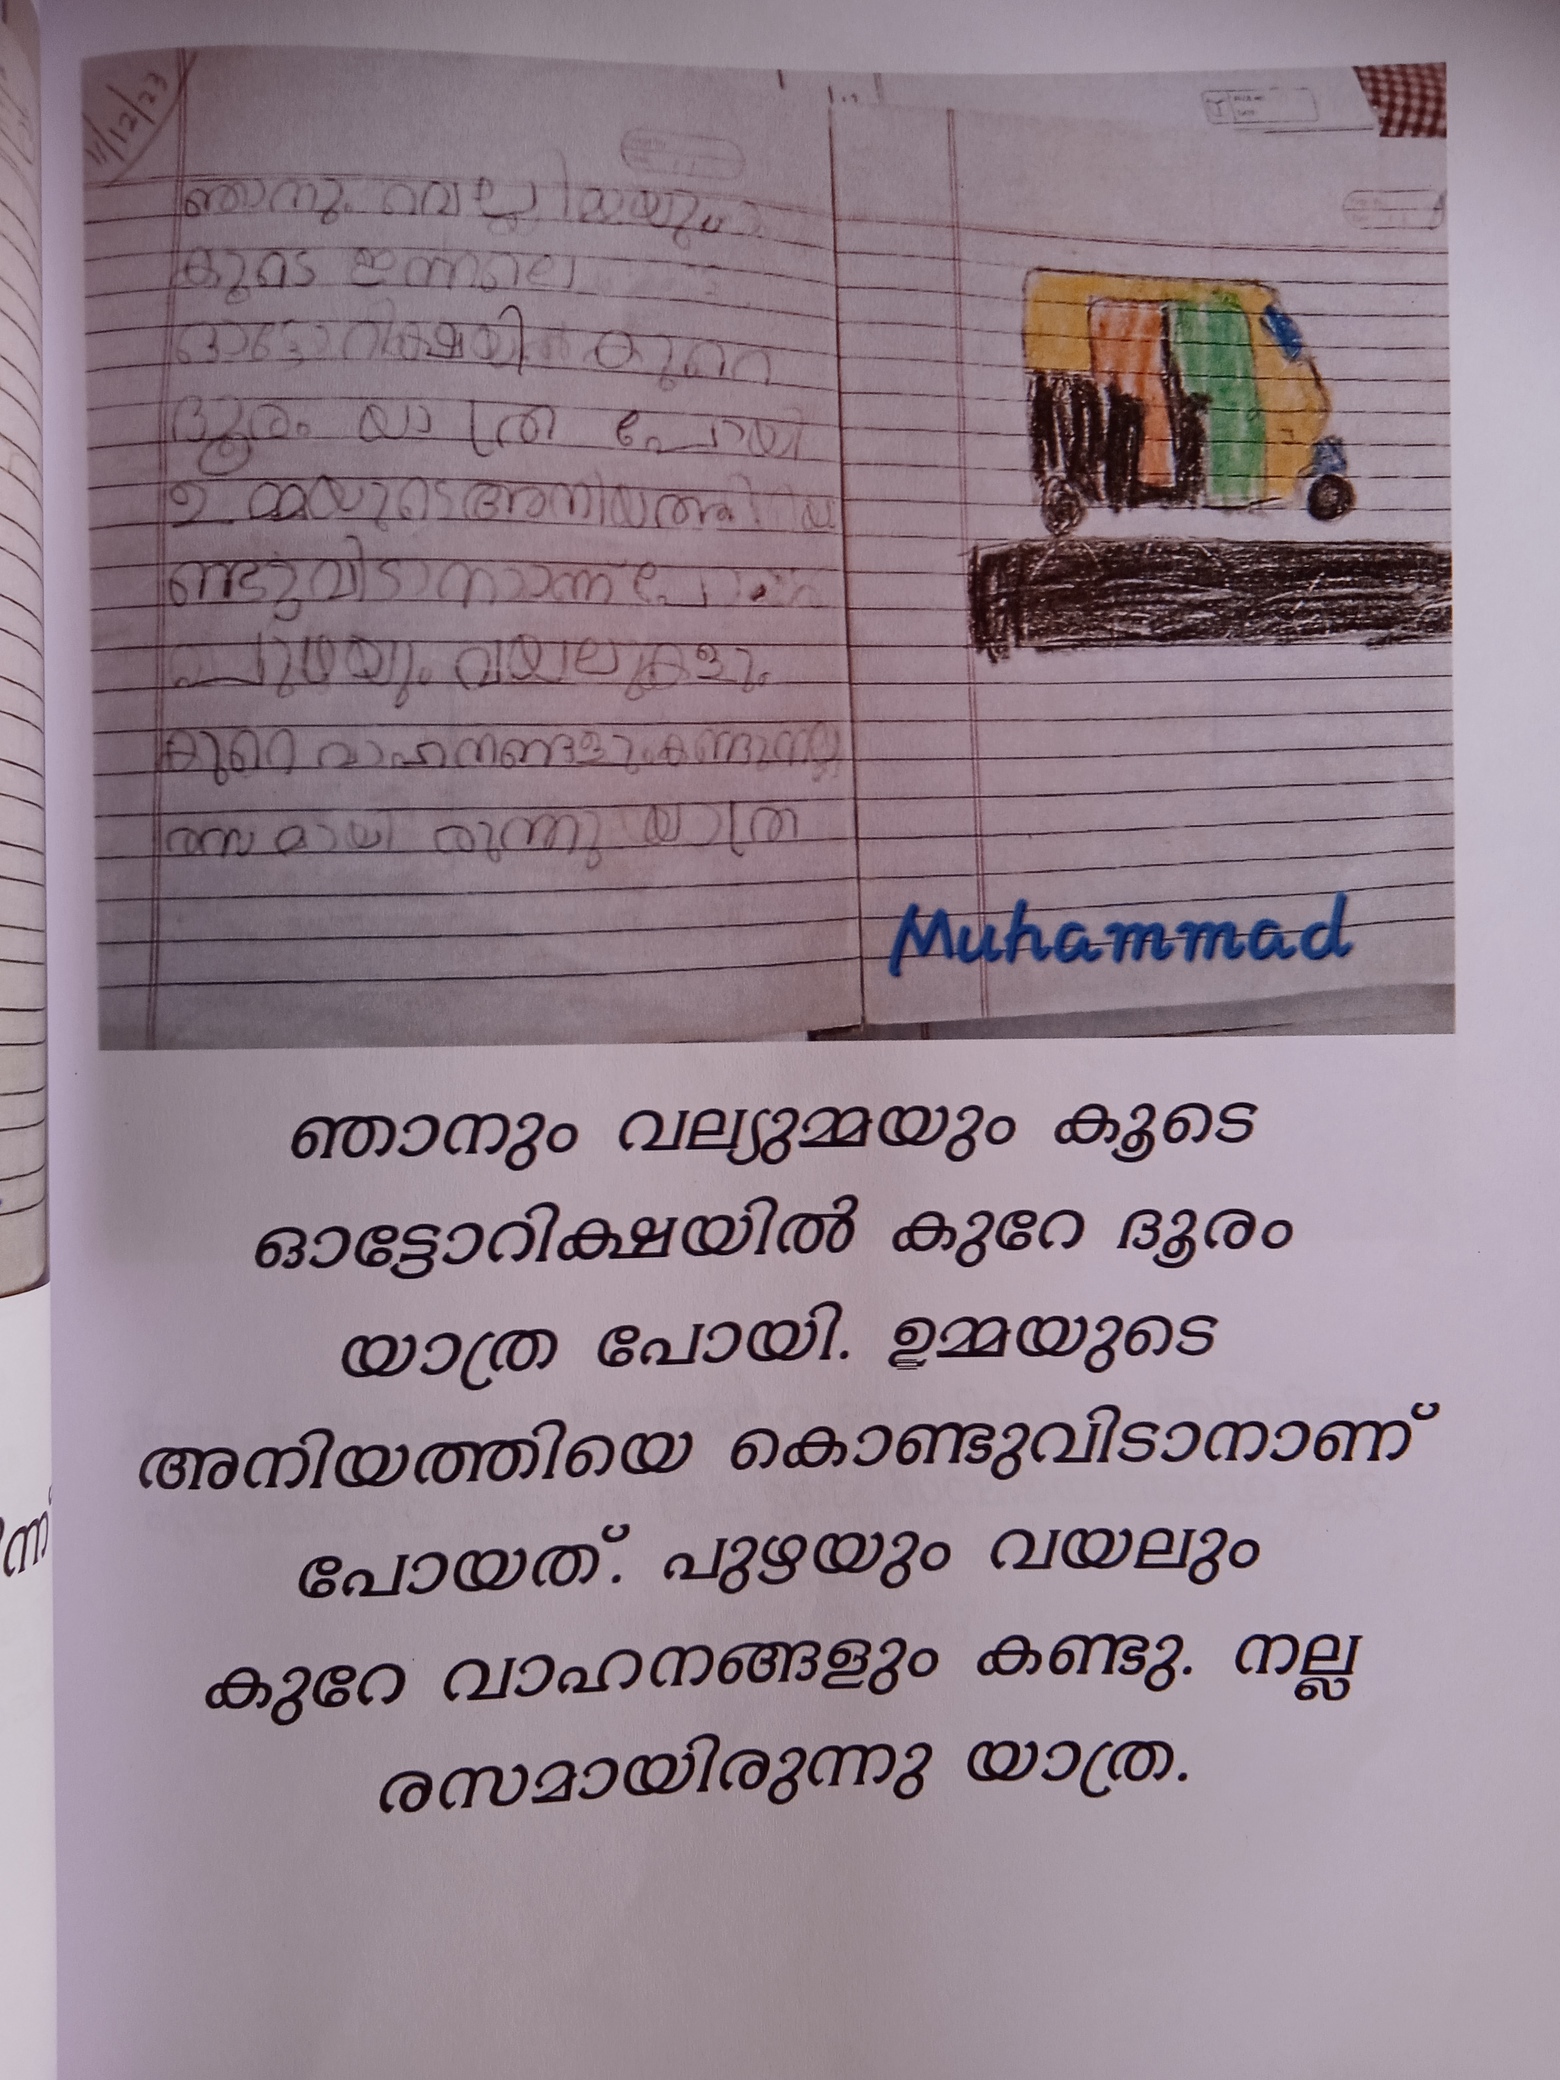 11/12/23
ഞാനും വെല്ലിമ്മയും
കൂടെ ഇന്നലെ
ഓട്ടോറിക്ഷയിൽ കുറെ
ദൂരം യാത്ര പോയി
ഉമ്മയുടെ
പുഴയും വയലുകളും
കുറെ വാഹനങ്ങളും കണ്ടു നല്ല
യാത്ര
Muhammad
ഞാനും വല്യുമ്മയും കൂടെ
ഓട്ടോറിക്ഷയിൽ കുറേ ദൂരം
യാത്ര പോയി. ഉമ്മയുടെ
അനിയത്തിയെ കൊണ്ടുവിടാനാണ്
പോയത്. പുഴയും വയലും
കുറേ വാഹനങ്ങളും കണ്ടു. നല്ല
രസമായിരുന്നു യാത്ര.